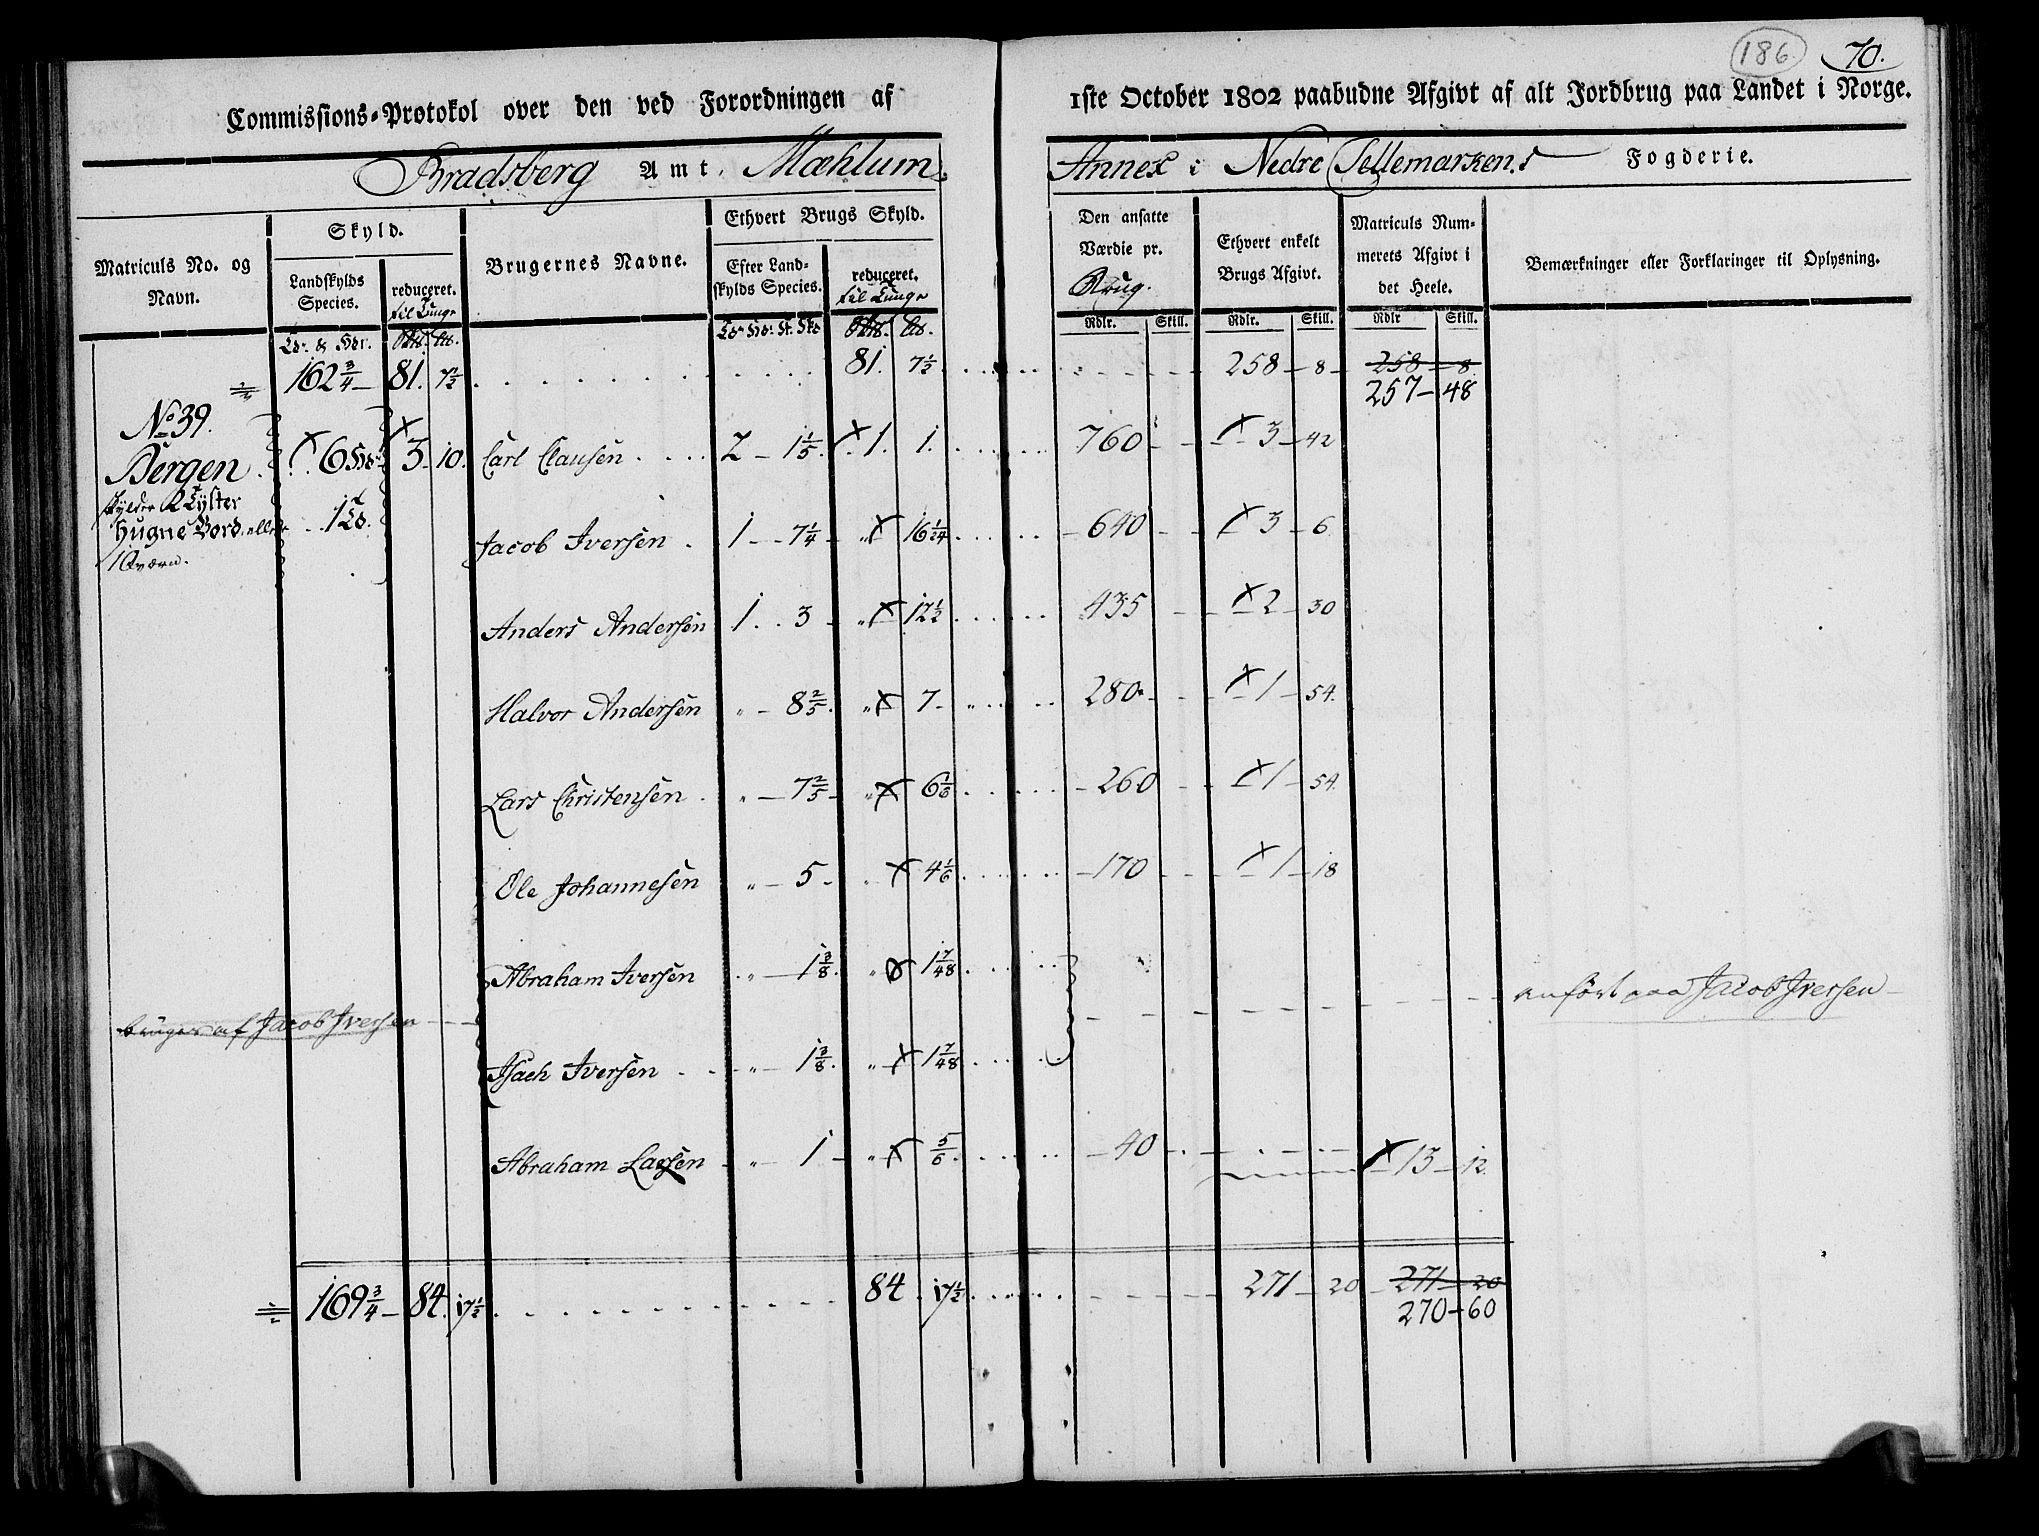 186. 70.
Commissions-Protokol over den ved Forordningen af 1ste October 1802 paabudne Afgivt af alt Jordbrug paa Landet i Norge.
Bradsberg Amt, Mæhlum Annex i Nedre Tellemarkens Fogderie.
Matriculs No. og Navn.
Skyld.
Landskylds Species.
reduceret. til Tunge
Brugernes Navne.
Ethvert Brugs Skyld.
Efter Landskylds Species.
reduceret. til Tunge
Den ansatte Værdie pr. Brug.
Ethvert enkelt Brugs Afgivt.
Matriculs Nummerets Afgivt i det Heele.
Bemærkninger eller Forklaringer til Oplysning.
Rdlr. Skill. Rdlr. Skill. Rdlr Skill.
162 3/4 – 81. 7 1/2 81. 7 1/2 258 – 8 – 258 – 8
257 – 48
No 39.
Bergen . 6 3 – 10. Carl Clausen 2 – 1 1/5 . 1. 1. 760 3 – 42
Hugne Bord
Jacob Iversen . 1 – 7 1/4 – " 16 1/24 – 640 – 3 – 6
Anders Andersen 1 . . 3 – " 12 1/2 435 – 2 – 30
Halvor Andersen " – 8 2/5 . " 7 – 280 – 1 – 54.
Lars Christensen . " – 7 2/5 – " 6 1/6 – 260 1 – 54.
Ole Johannesen " – 5 – " 4 1/6 – 170 1 – 18
Abraham Iversen " – 1 3/8 . " 1 7/48
bruges af Jacob Iversen anført paa Jacob Iversen
Isach Iversen " – 1 3/8 . " 1 7/48
Abraham Larsen " – 1 – " 5/6 – 40 13 – 12.
169 3/4 – 84. 17 1/2 84 . 17 1/2 271 – 20 – 271 – 20
270 – 60